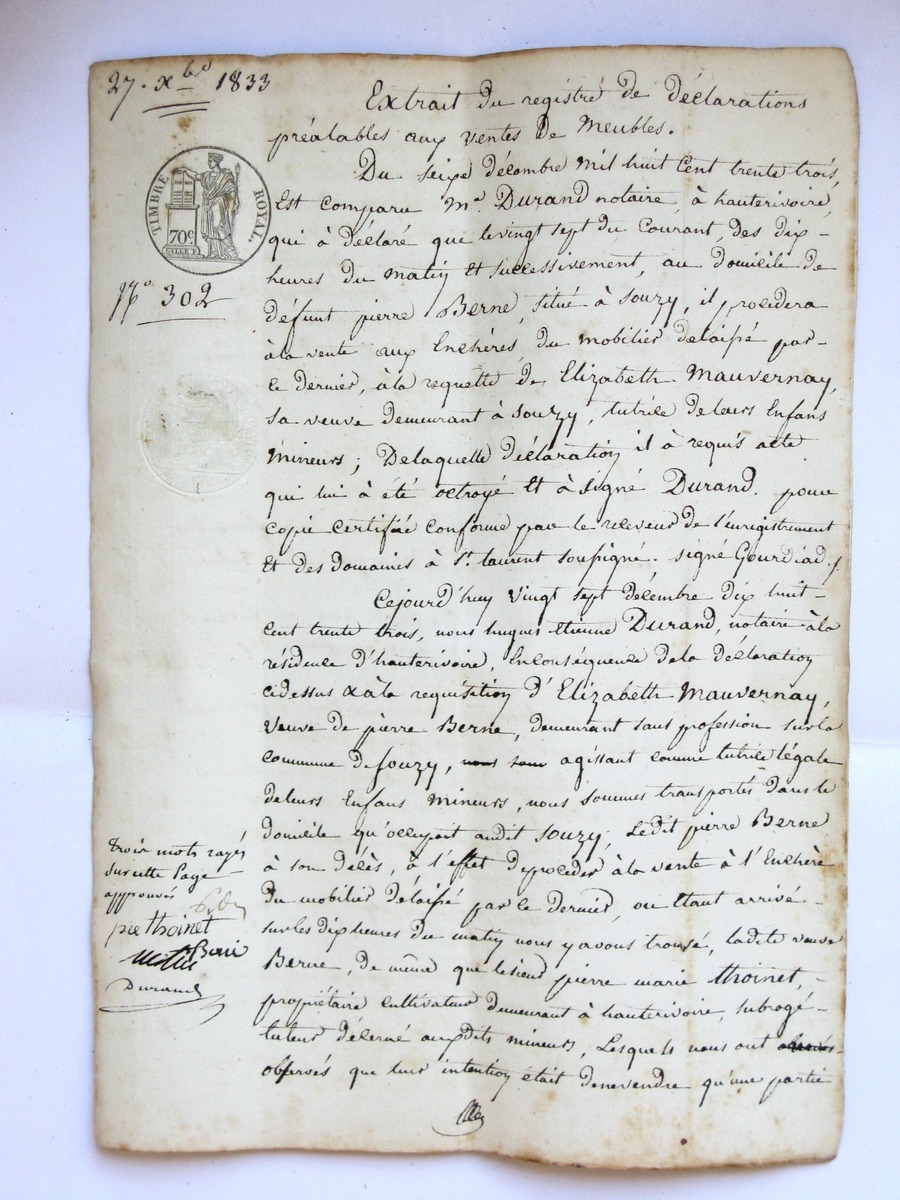 27. Xbre 1833
Extrait du registre de déclarations
préalables aux ventes de Meubles.
TIMBRE ROYAL.
70c
N° 302
Du seize décembre Mil huit Cent trente trois,
Est comparu Me. Durand notaire, à hauterivoire,
qui à déclaré que le vingt sept du Courant, des dix-
heures du matin Et successivement, au domicile de
défunt pierre Berne, situé à Souzy, il procédera
à la vente aux Enchères, du mobilier délaissé par-
le dernier, à la requette de Elizabeth Mauvernay,
sa veuve demeurant à Souzy, tutrice de leurs Enfans
Mineurs; Delaquelle déclaration il à requis acte
qui lui à été octroyé Et à signé Durand. pour
copie certifiée conforme par le receveur de l'enregistrement
Et des domaines à St. laurent soussigné. signé Gourdiad.
Cejourd'huy vingt sept décembre dix huit-
cent trente trois, nous hugues-etienne Durand, notaire à la
résidence d'hauterivoire, En conséquence de la déclaration
cidessus & à la requisition d'Elizabeth Mauvernay,
veuve de pierre Berne, demeurant sans profession sur la
commune de Souzy, agissant comme tutrice légale
de leurs Enfans mineurs, nous sommes transportés dans le
domicile qu'occupait audit Souzy, Ledit pierre Berne
à son décès, à l'effet de procéder à la vente à l'Enchère
du mobilier délaissé par le dernier, ou Etant arrivé-
sur les dix heures du matin nous y avons trouvé, ladite veuve
Berne, de même que le sieur pierre marie thoinet,-
propriétaire cultivateur demeurant à hauterivoire, subrogé-
tuteur décerné auxdits mineurs, Lesquels nous ont
observés que leur intention était de ne vendre qu'une partie
trois mots rayés
sur cette page
approuvés
pre thoinet
Durand